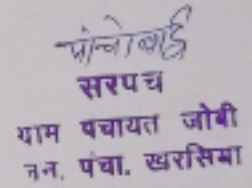 पांचोबाई
सरपच
ग्राम पचायत जोबी
जन. पंचा. खरसिया